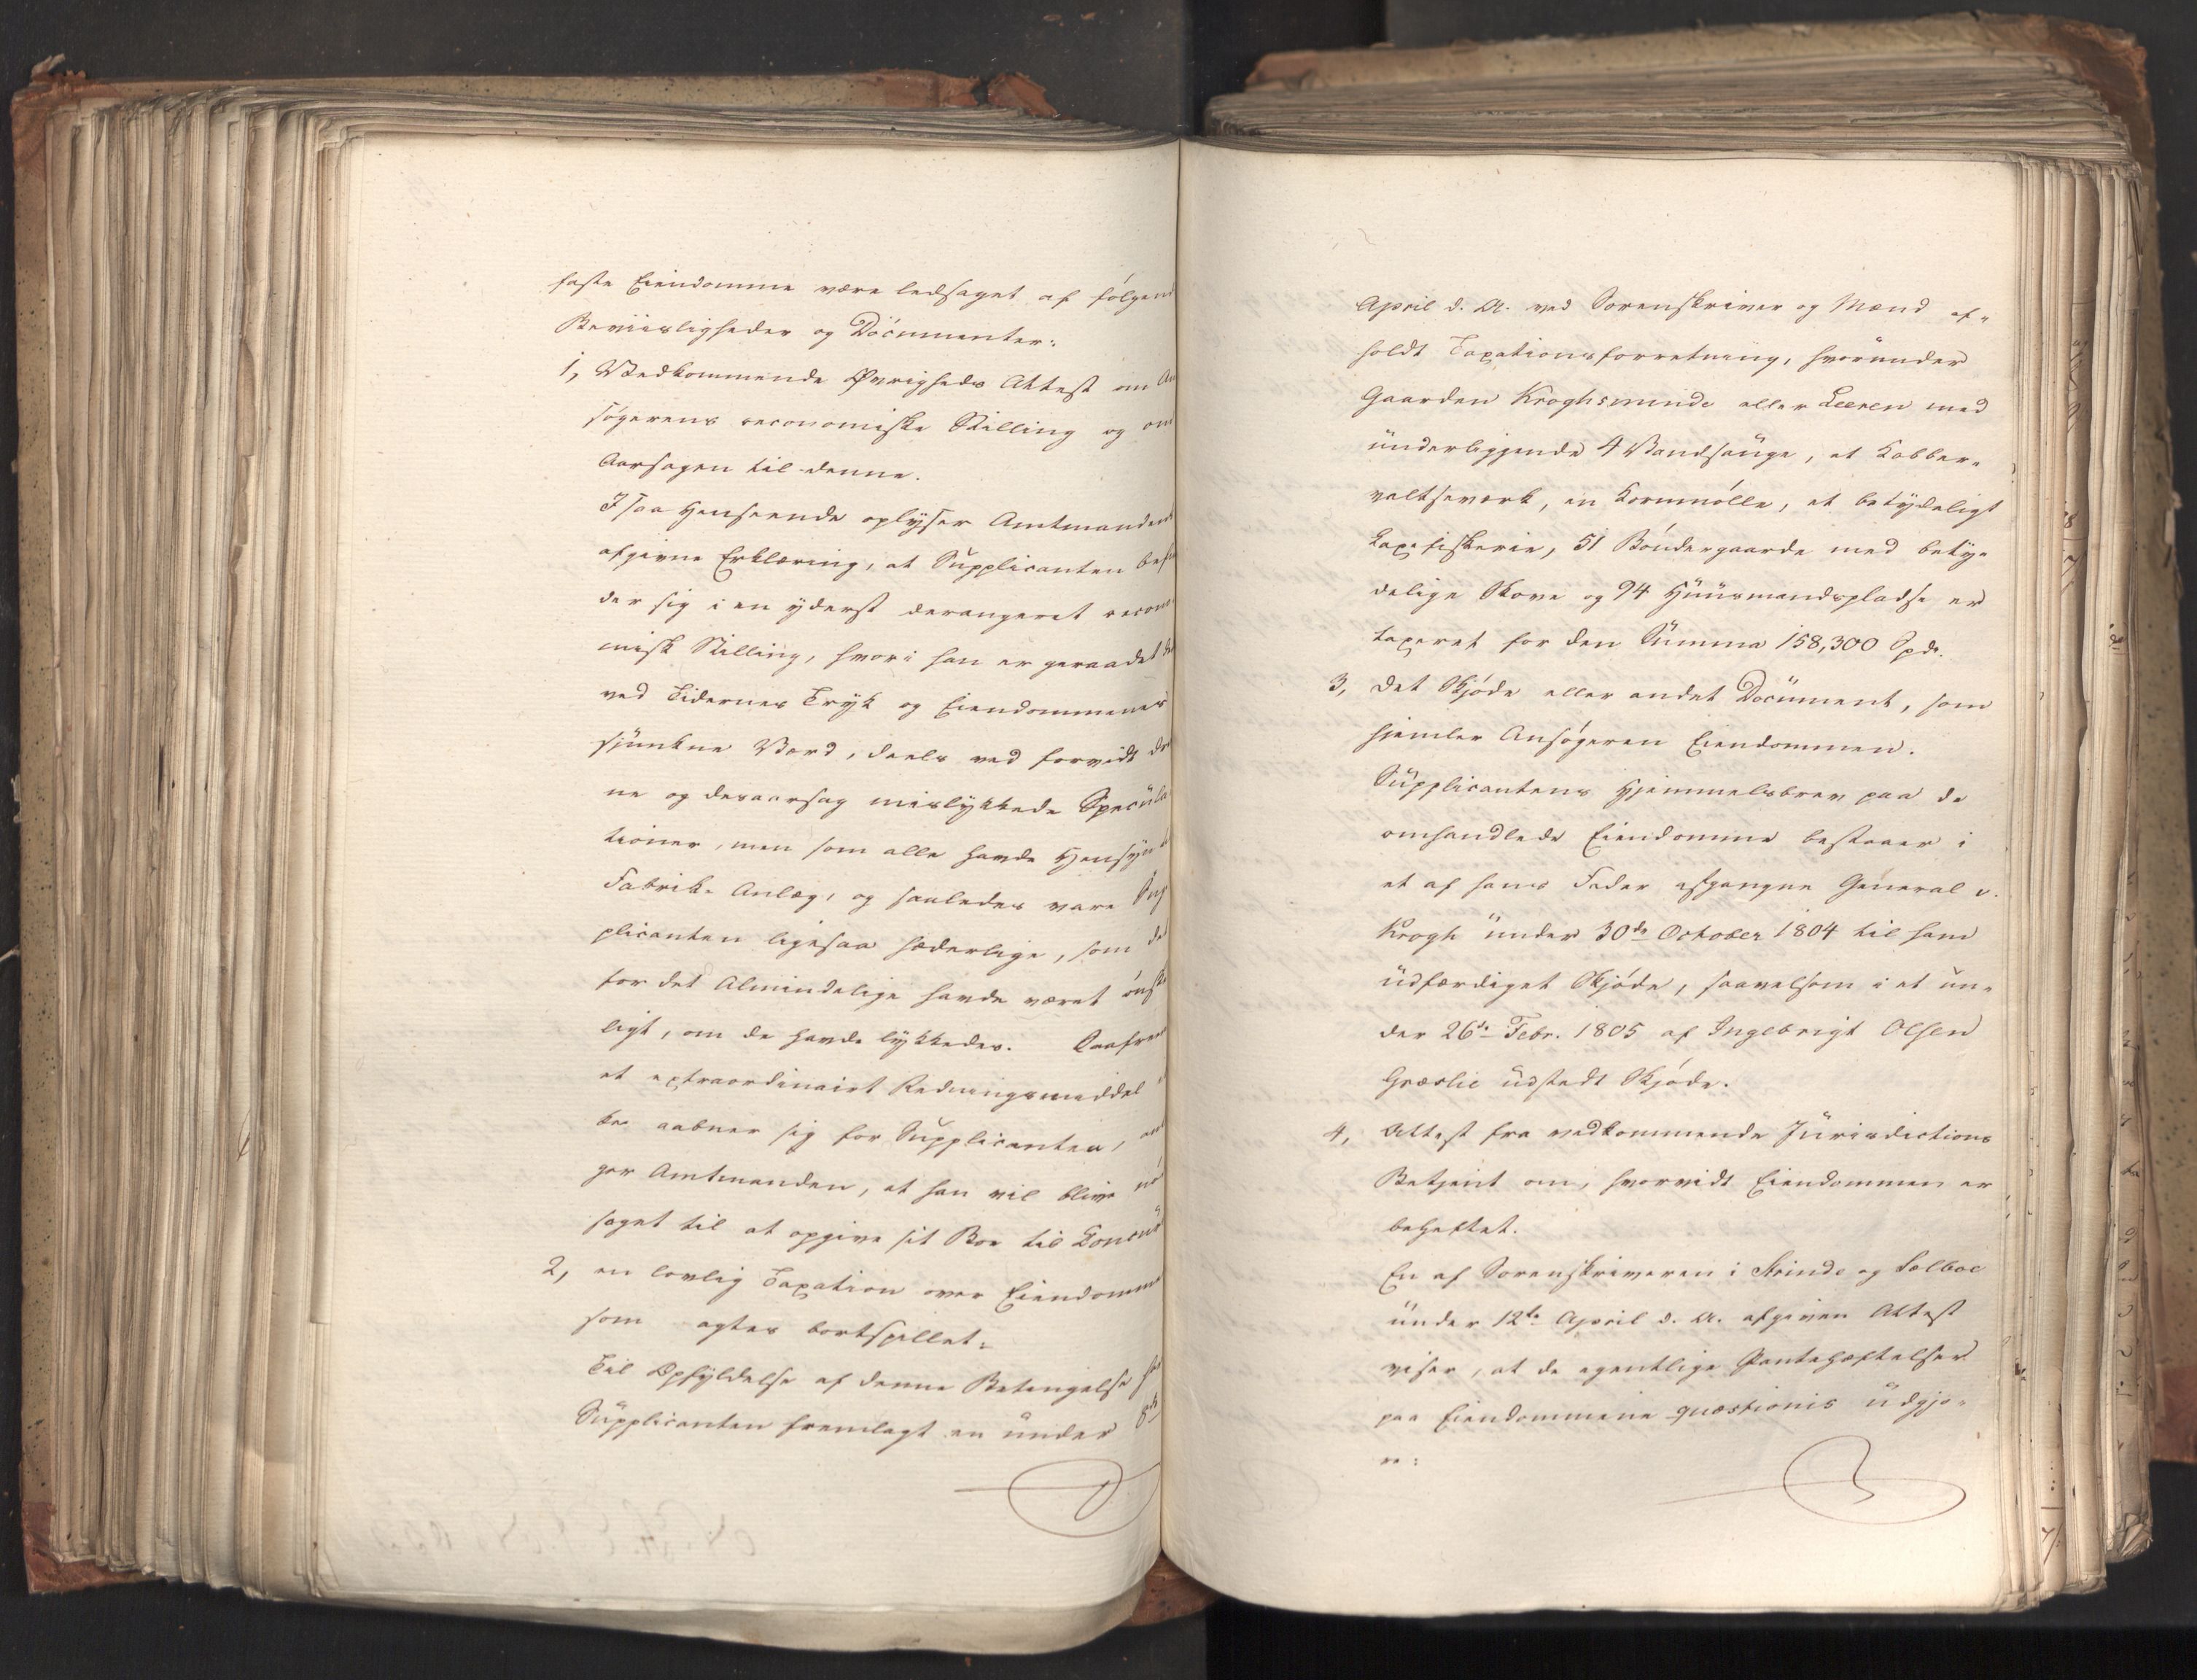 faste Eiendomme være ledsaget af følgend
Beviisligheder og Documenter:
1, Vedkommende Øvrigheds Attest om An
søgerens oeconomiske Stilling og om
Aarsagen til denne.
I saa Henseende oplyser Amtmandens
afgivne Erklæring, at Supplicanten befin
der sig i en yderst derangeret oecono-
misk Stilling, hvori han er geraadet
ved Tidernes Tryk og Eiendommenes
sjunkne Værd, deels ved forvidt dre
ne og desaarsag mislykkede Specula
tioner, men som alle havde Hensyn
Fabrik-Anlæg, og saaledes vare Sup
plicanten ligesaa hæderlige, som det
for det Almindelige havde været ønske
ligt, om de havde lykkedes.
et extraordinairt Redningsmiddel
ke aabner sig for Supplicanten, an
ger Amtmanden, at han vil blive nø
saget til at opgive sit Boe til Concur
2, en lovlig Taxation over Eiendomme
som agtes bortspillet.
Til Opfyldelse af denne Betingelse har
Supplicanten fremlagt en under 8de
April d. A. ved Sorenskriver og Mænd af-
holdt Taxationsforretning, hvorunder
Gaarden Kroghsminde eller Leeren med
underliggende 4 Vandsauge, et Kobber-
valtseværk, en Kornmølle, et betydeligt
Laxefiskerie, 51 Bøndergaarde med bety-
delige Skove og 94 Huusmandspladse er
taxeret for den Summa 158,300 Spd.
3, det Skjøde eller andet Document, som
hjemler Ansøgeren Eiendommen.
Supplicantens Hjemmelsbrev paa de
omhandlede Eiendomme bestaaer i
et af hans Fader afgangne General v.
Krogh under 30de October 1804 til ham
udfærdiget Skjøde, saavelsom i et un-
der 26de Febr. 1805 af Ingebrigt Olsen
Græslie udstedt Skjøde.
4, Attest fra vedkommende Jurisdictions
Betjent om, hvorvidt Eiendommen er
beheftet.
En af Sorenskriveren i Strinde og Sælboe
under 12te April d. A. afgiven Attest
viser, at de egentlige Pantehæftelser
paa Eiendommene quæstionis udgjø-
re: